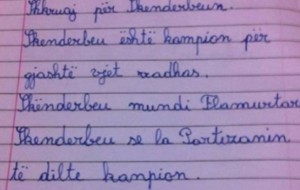 Shkruaj për Skenderbeun.
Skenderbeu është kampion për
gjashtë vjet rradhas.
Skënderbeu mundi Flamurtar
Skenderbeu se la Partizanin
të dilte kanpion.